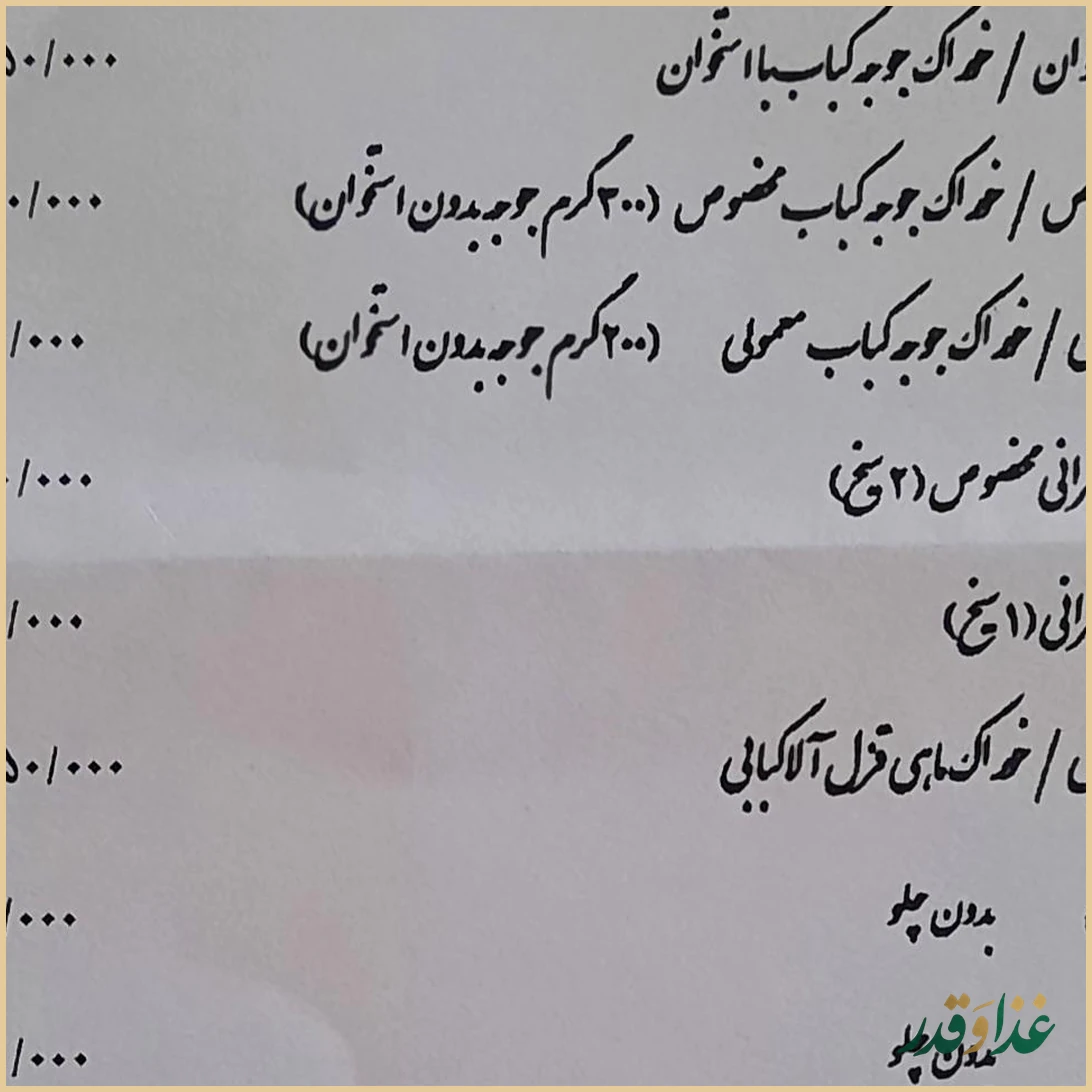 خوراک جوجه کباب با استخوان /۰۰۰
/ خوراک جوجه کباب مخصوص (۳۰۰ گرم جوجه بدون استخوان) /۰۰۰
/ خوراک جوجه کباب معمولی (۲۰۰ گرم جوجه بدون استخوان) /۰۰۰
مخصوص (۲ سیخ) /۰۰۰
(۱ سیخ) /۰۰۰
/ خوراک ماهی قزل آلا کبابی ۵۰/۰۰۰
بدون چلو /۰۰۰
بدون چلو /۰۰۰
غذا و قدر